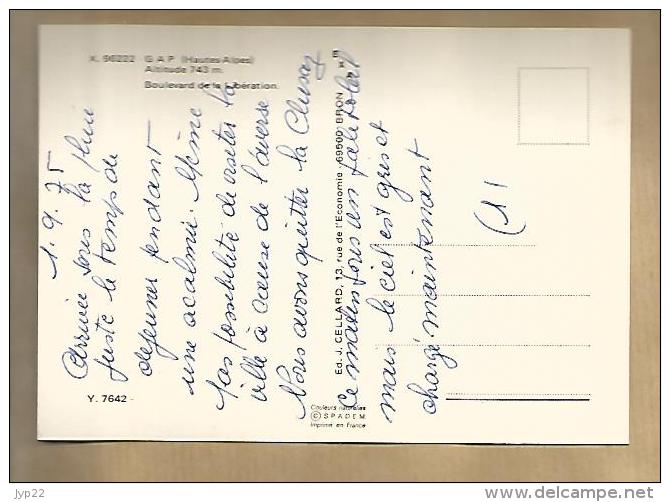 X. 96222 - GAP (Hautes-Alpes)
Altitude 743 m.
Boulevard de la Libération
1.9.75
Arrivée sous la pluie
juste le temps de
déjeuner pendant
une acalmie. Même
pas possibilité de visiter la
ville à cause de l'averse
Nous avons quitter la Clusaz
Ce matin sous un pâle soleil
mais le ciel est gris et
chargé maintenant
(1)
Ed. J. CELLARD, 13, rue de l'Economie - 69500 BRON
EX
Y. 7642 -
Couleurs naturelles
© SPADEM
Imprimé en France
jyp22
http://www.delcampe.net